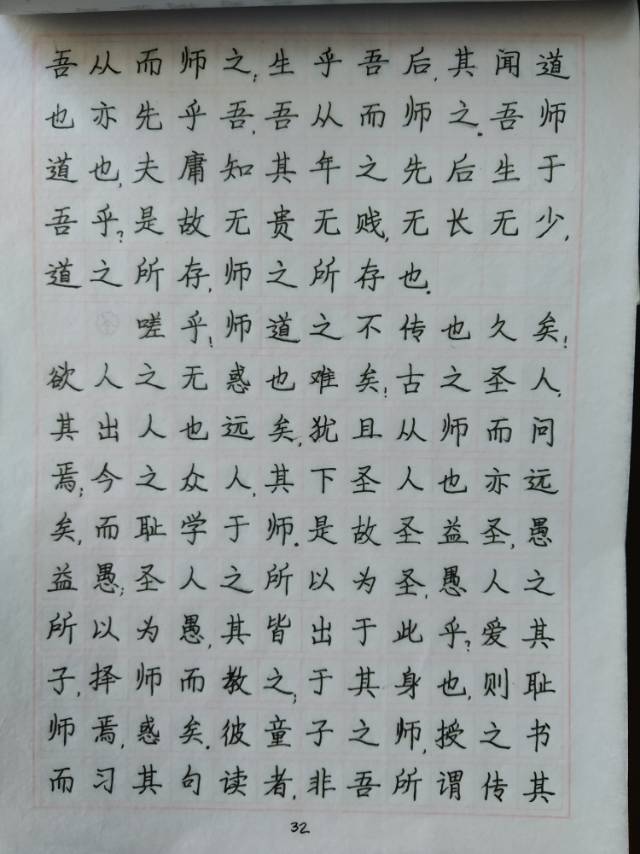 吾从而师之;生乎吾后,其闻道
也亦先乎吾,吾从而师之。吾师
道也,夫庸知其年之先后生于
吾乎?是故无贵无贱,无长无少,
道之所存,师之所存也。
嗟乎!师道之不传也久矣!
欲人之无惑也难矣!古之圣人,
其出人也远矣,犹且从师而问
焉;今之众人,其下圣人也亦远
矣,而耻学于师。是故圣益圣,愚
益愚;圣人之所以为圣,愚人之
所以为愚,其皆出于此乎?爱其
子,择师而教之;于其身也,则耻
师焉,惑矣。彼童子之师,授之书
而习其句读者,非吾所谓传其
32